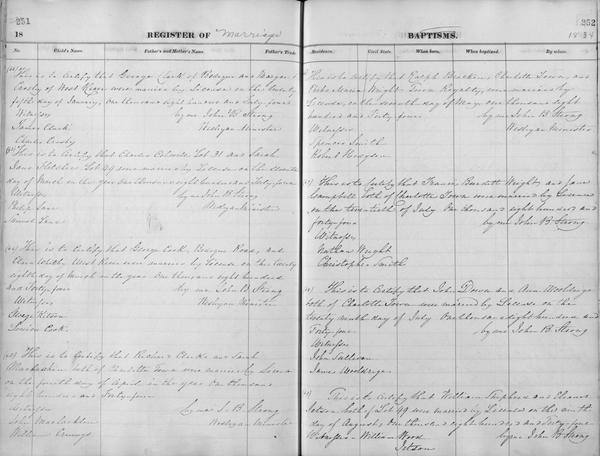 251
18
REGISTER OF Marriage
No.
Child's Name.
Father's and Mother's Name.
Father's Trade
This is to Certify that George Clark of Bedeque and Margaret
Crosby of West River were married by License on the twenty
fifth day of January, One thousand eight hundred and forty four
Witnesses
by me John B Strong
James Clark
Wesleyan Minister
Charles Crosby
This is to Certify that Charles Lot 31 and Sarah
Jane Fletcher Lot 49 were married by License on the eleventh
day of March in the year One thousand eight hundred and forty four
Witnesses
by me John B Strong
Wesleyan Minister
Samuel Lane
This is to Certify that George Cook, Bedeque Road, and
West River were married by License on the twenty
eighth day of March in the year One thousand eight hundred
and Forty four
by me John B. Strong
Witnesses
Wesleyan Minister
George
Louisa Cook
This is to Certify that Richard Clark and Sarah
Maclachlan both of Charlotte Town were married by License
on the fourth day of April in the year One thousand
eight hundred and Forty four
Witnesses
by me J. B Strong
John Maclachlan
Wesleyan Minister
William Cummings
252
BAPTISMS.
1844
Residence.
Civil State.
When born.
When baptized.
By whom.
This is to certify that Ralph Brecken Charlotte Town, and
Wright Town Royalty, were married by
License, on the seventh day of May, One thousand eight
hundred and Forty four
by me John B Strong
Witnesses
Wesleyan Minister
Spencer Smith
Robert Hodgson
This is to Certify that Francis Burdett Wright and Jane
Campbell both of Charlotte Town were married by License
on the twentieth of July One thousand eight hundred and
forty four
by me John B Strong
Witnesses
Nathan Wright
Christopher Smith
This is to Certify that John Down and Ann Wooldridge
both of Charlotte Town were married by License on the
twenty ninth day of July One thousand eight hundred and
Forty four
by me John B Strong
Witnesses
John Sullivan
James Wooldridge
This is to Certify that William Shepherd and Eleanor
Jetson both of Lot 49 were married by License on the ninth
day of August, One thousand eight hundred and Forty four
Witnesses William Wood
by me John B Strong
Jetson